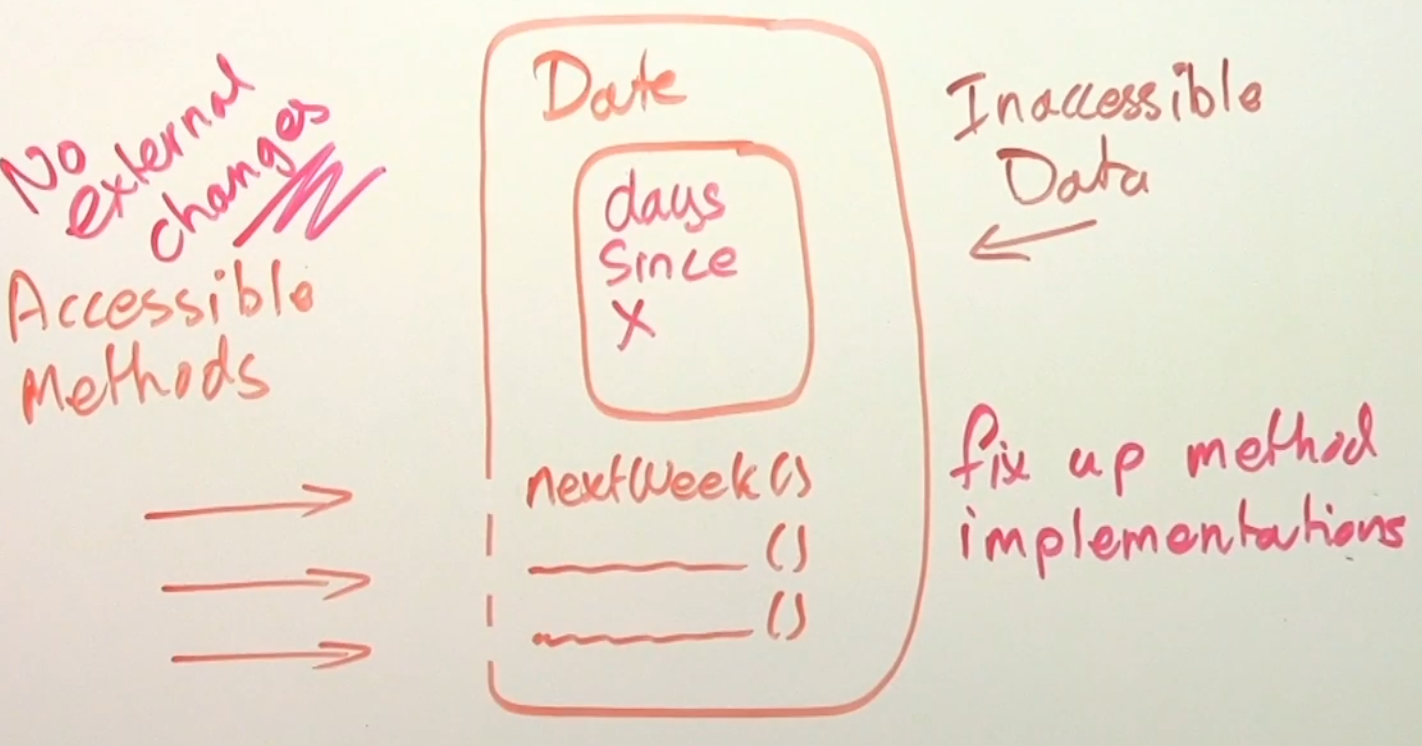 No
external
changes
Accessible
Methods
Date
days
Since
X
nextWeek()
()
()
Inaccessible
Data
fix up method
implementations